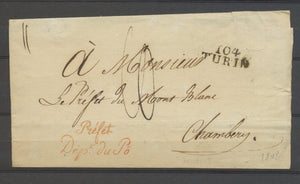 104
TURIN
à Monsieur
Le Préfet du Mont Blanc
Chambéry.
Préfet
Dép.t du Pô